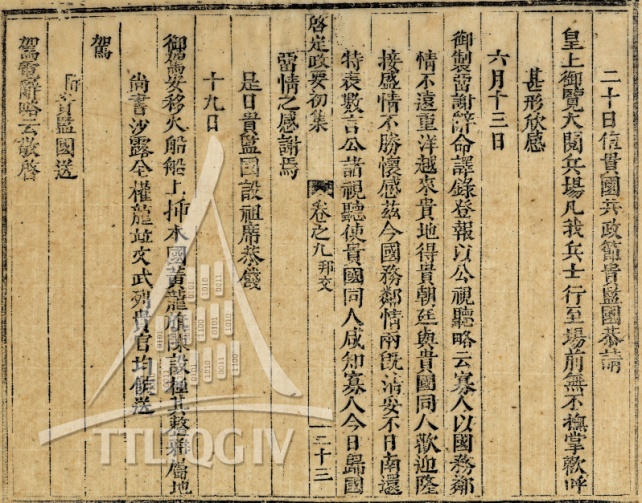 二十日值貴國兵政節貴監國恭請
皇上御覽大閱兵塲凡我兵士行至塲前無不撫掌歡呼
甚形欣感
六月十三日
御製留謝辭命譯錄登報以公視聽略云寡人以國務鄰
情不遠重洋越來貴地得貴朝廷與貴國同人歡迎隆
接盛情不勝懷感茲今國務鄰情兩旣清妥不日南還
特表數言公諸視聽使貴國同人咸知寡人今日歸國
留情之感謝焉
啓定政要初集 卷之九邦交 二十三
是日貴監國設祖席恭餞
十九日
御駕安移火船船上揷本國黃龍旗陳設極其整雅屬地
尚書沙露全權龍並文武列貴官均候送
駕
貴監國送
駕電辭略云敬啓
TTLTQG IV